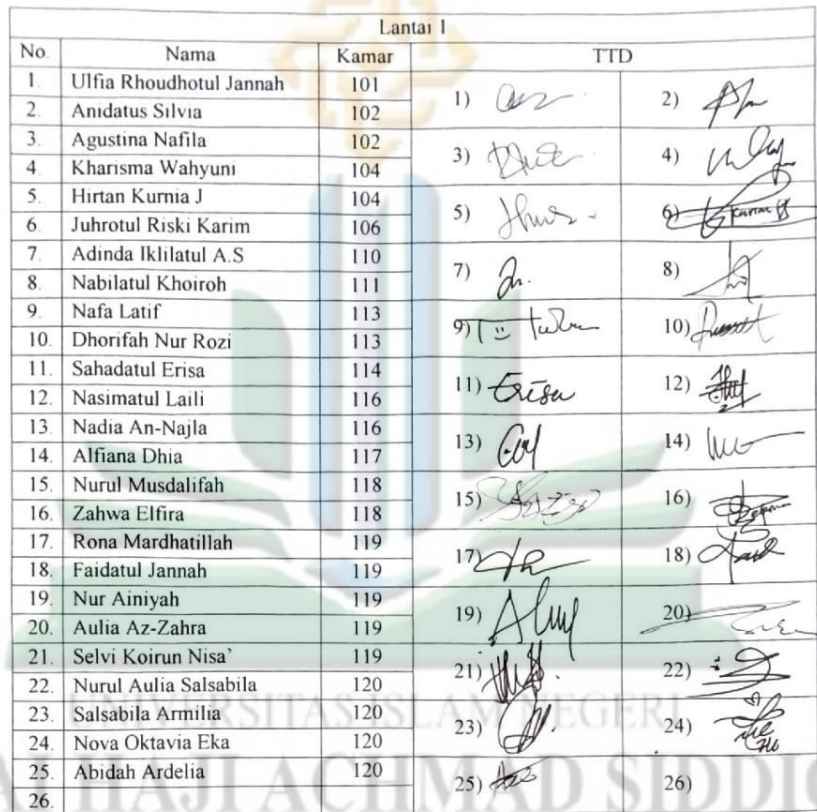 Lantai 1
No. Nama Kamar TTD
1. Ulfia Rhoudhotul Jannah 101
2. Anidatus Silvia 102
1) 2)
3. Agustina Nafila 102
4. Kharisma Wahyuni 104
3) 4)
5. Hirtan Kurnia J 104
6. Juhrotul Riski Karim 106
5) 6)
7. Adinda Iklilatul A.S 110
8. Nabilatul Khoiroh 111
7) 8)
9. Nafa Latif 113
10. Dhorifah Nur Rozi 113
9) 10)
11. Sahadatul Erisa 114
12. Nasimatul Laili 116
11) Erisa 12)
13. Nadia An-Najla 116
14. Alfiana Dhia 117
13) 14)
15. Nurul Musdalifah 118
16. Zahwa Elfira 118
15) 16)
17. Rona Mardhatillah 119
18. Faidatul Jannah 119
17) 18)
19. Nur Ainiyah 119
20. Aulia Az-Zahra 119
19) 20)
21. Selvi Koirun Nisa’ 119
22. Nurul Aulia Salsabila 120
21) 22)
23. Salsabila Armilia 120
24. Nova Oktavia Eka 120
23) 24)
25. Abidah Ardelia 120
26.
25) 26)
UNIVERSITAS ISLAM NEGERI
HAJI ACHMAD SIDDI